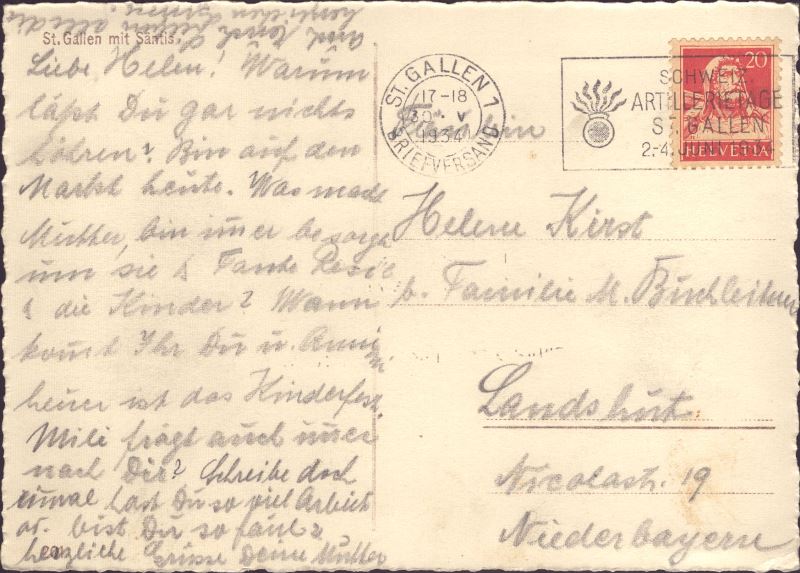 St. Gallen mit Säntis.
Liebe Helen! Warum
läßt Du gar nichts
hören? Bin auf den
Markt heute. Was macht
Mutter, bin imer besorgt
um sie & Tante Resie
& die Kinder? Wann
komt Ihr Du u. Anni
heuer ist das Kinderfest,
Mili frägt auch imer
nach Dir? Schreibe doch
einmal hast Du so viel Arbeit
od. bist Du so faul?
herzliche Grüsse Deine Mutter
ST. GALLEN 1
17-18
30. V
1934
BRIEFVERSAND
SCHWEIZ.
ARTILLERIETAGE
ST. GALLEN
2.-4. JUNI 1934
20
HELVETIA
Fräulein
Helene Kirst
b. Familie M. Buchleitner
Landshut
Nicolastr. 19
Niederbayern